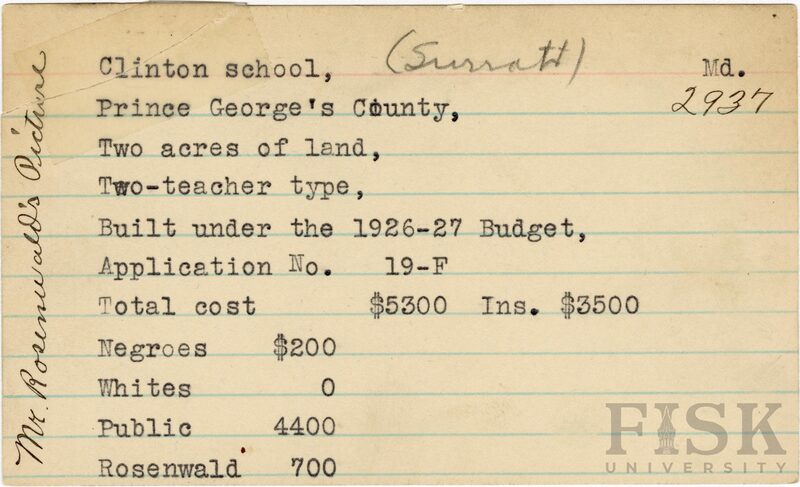 Clinton school, (Surratt) Md.
Prince George's County, 2937
Two acres of land,
Two-teacher type,
Built under the 1926-27 Budget,
Application No. 19-F
Total cost $5300 Ins. $3500
Negroes $200
Whites 0
Public 4400
Rosenwald 700
Mr. Rosenwald's Picture
FISK
UNIVERSITY